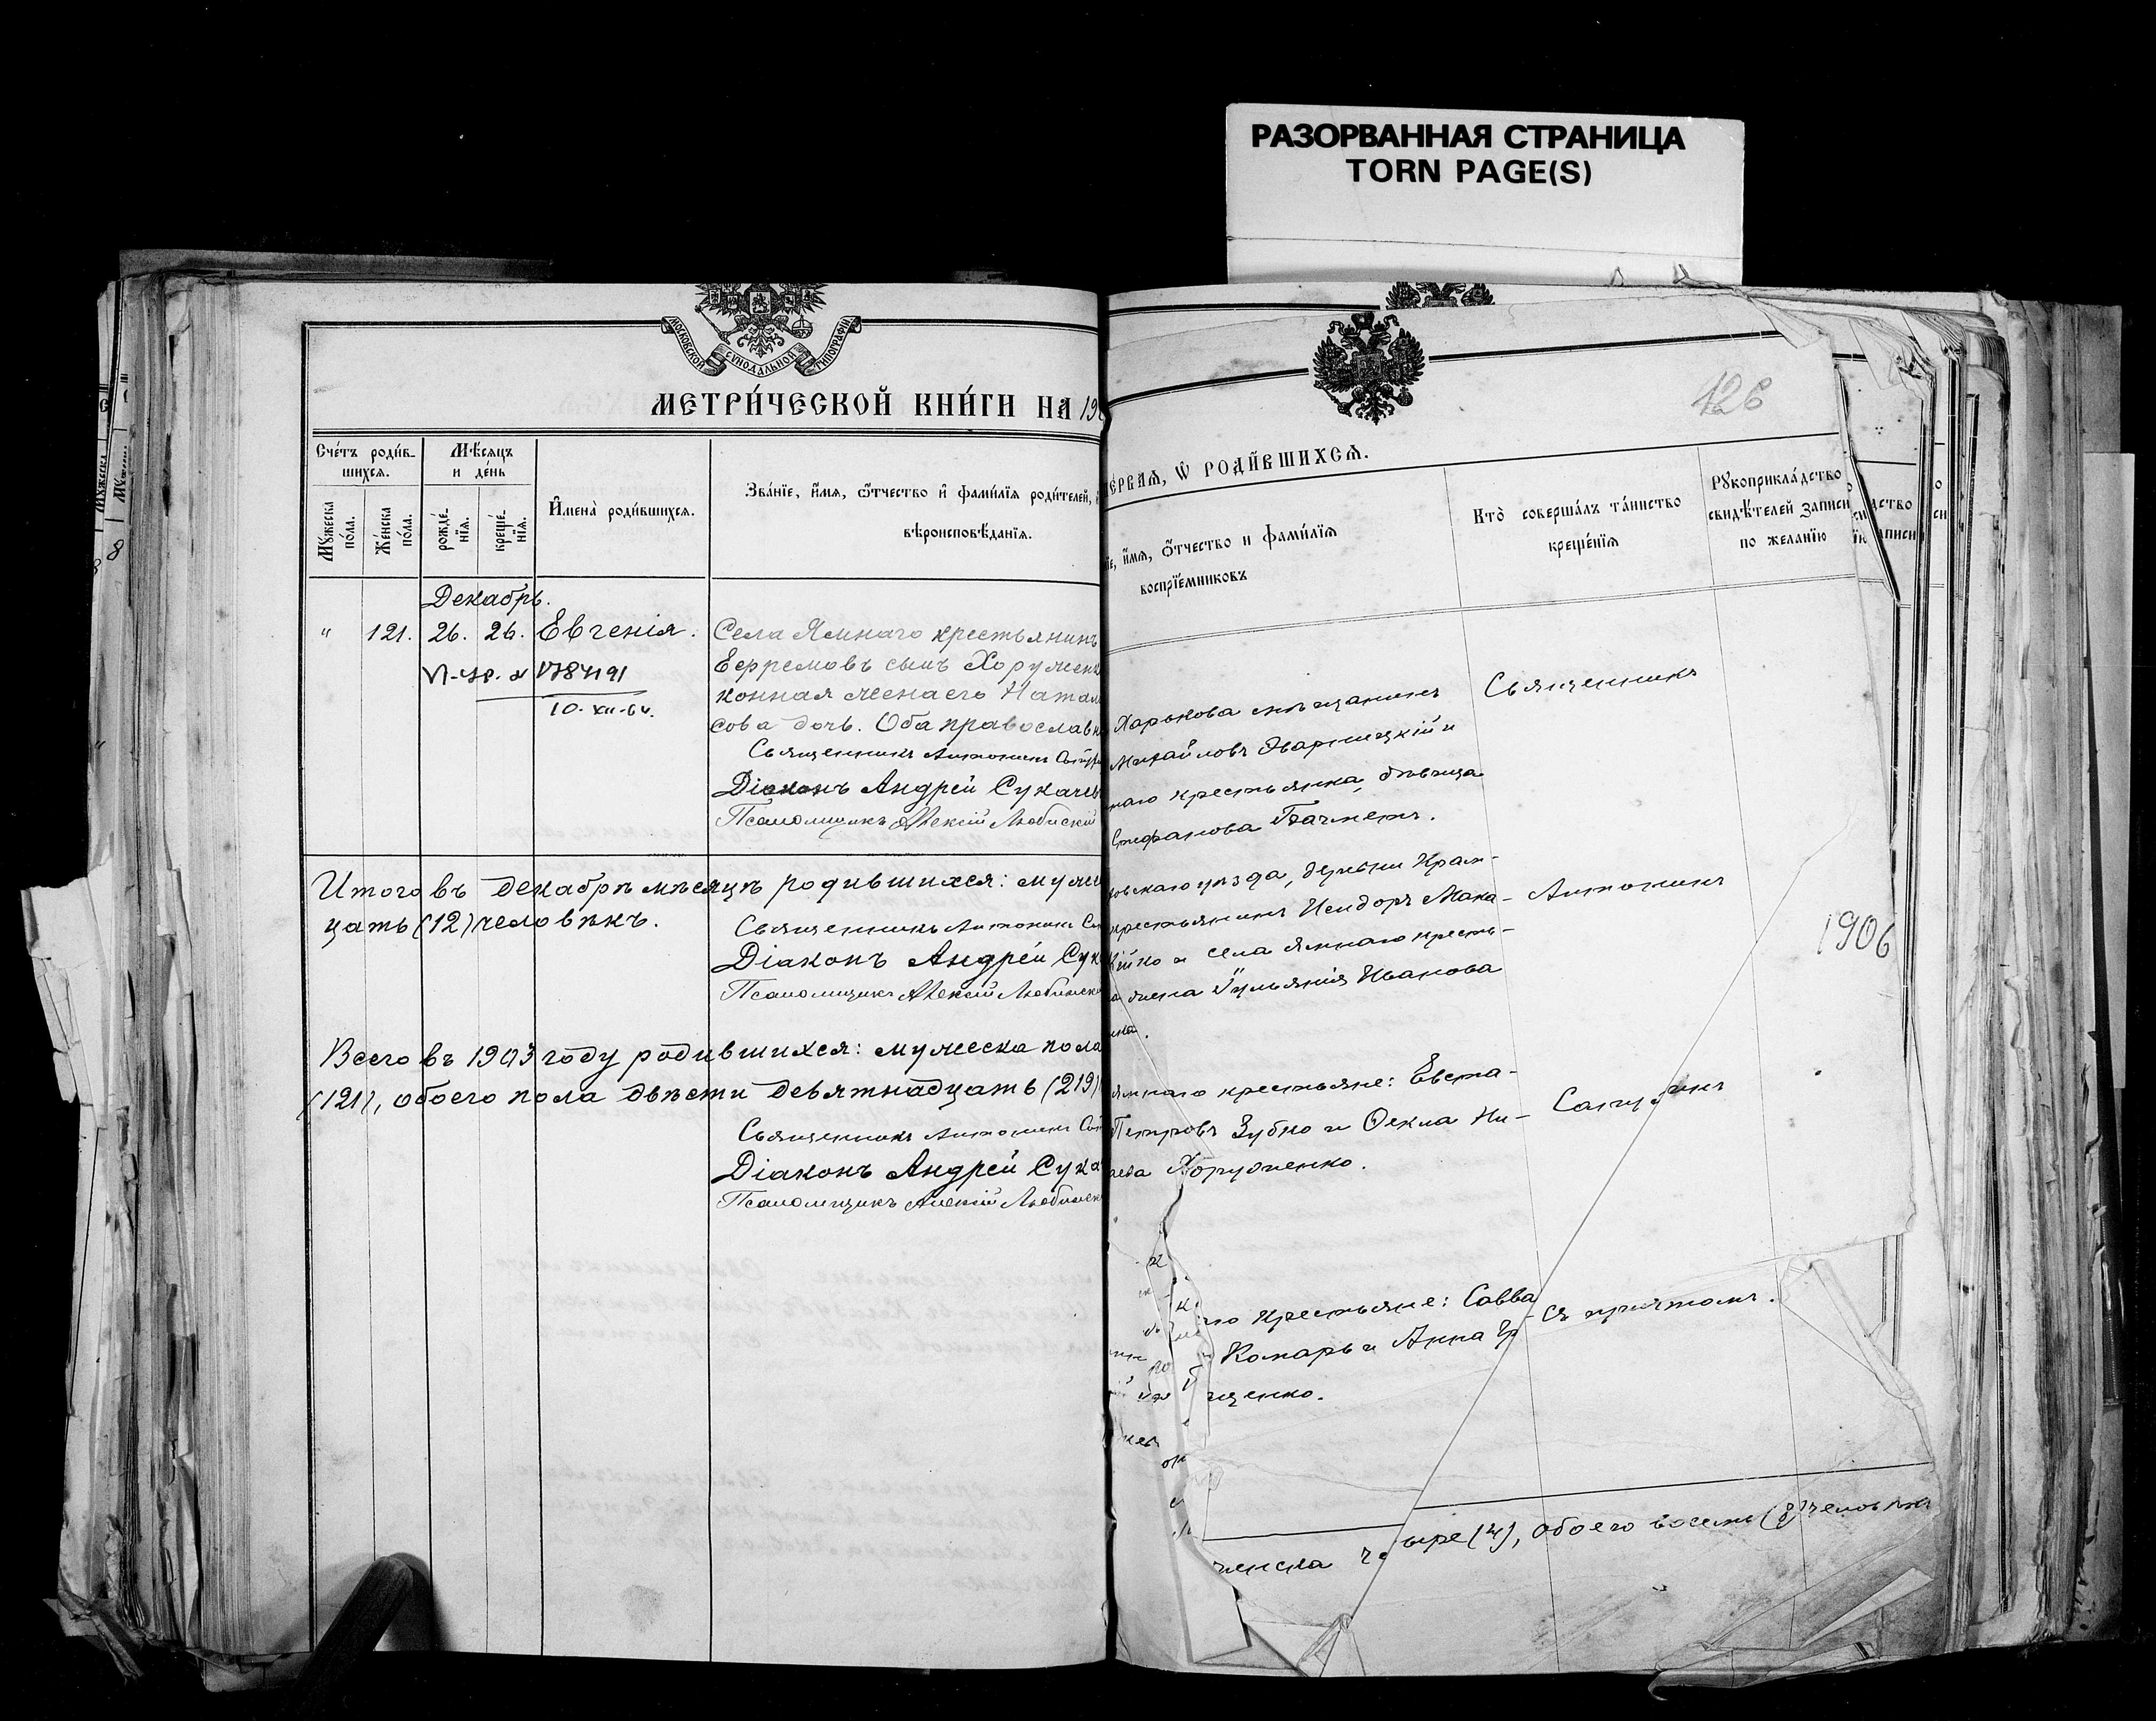 РАЗОРВАННАЯ СТРАНИЦА
TORN PAGE(S)
МОСКОВСКОЙ СѴНОДАЛЬНОЙ ТИПОГРАФІИ
МЕТРИ́ЧЕСКОЙ КНИ́ГИ НА 190
Сче́тъ роди́в-
шихся.
Мꙋ́жеска по́ла.
Же́нска по́ла.
Мѣ́сяцъ
и де́нь
рожде́-
нїя.
креще́-
нїя.
И҆мена̀ роди́вшихся.
Зва́нїе, и҆́мя, ѻ҆́тчество и҆ фами́лїя роди́телей,
вѣроисповѣ́данїя.
Декабрь.
" 121. 26. 26. Евгенія.
Села Ямнаго крестьянинъ
Ефремовъ сынъ Хоруженк
конная жена его Натал
сова дочь. Оба православн
Священникъ Антонин
Діаконъ Андрей Сукачев
Псаломщикъ Алексій Любинскій
10-XII-
Итого въ декабрѣ мѣсяцѣ родившихся: муже
цать (12) человѣкъ.
Священникъ Антонинъ
Діаконъ Андрей Сук
Псаломщикъ Алексій Любинск
Всего въ 1903 году родившихся: мужеска пола
(121), обоего пола двѣсти девятнадцать (219)
Священникъ Антонинъ
Діаконъ Андрей Сука
Псаломщикъ Алексій Любинск
126
ПЕРВАЯ, Ѡ҆ РОДИ́ВШИХСЯ.
и҆́мя, ѻ҆́тчество и фами́лїя
воспрїе́мниковъ
Кто̀ соверша́лъ та́инство
креще́нїя
Рꙋкоприкла́дство
свидѣ́телей записи
по жела́нїю
Харькова мѣщанинъ
Михайловъ Эварницкій и
наго крестьянка, дѣвица
Стефанова Бахметъ.
Священникъ
овскаго уѣзда, деревни Крам-
крестьянинъ Исидоръ Мака-
ійко и села Ямнаго кресть-
жена Гульянія Иванова
нка.
Антонинъ
1906
Ямнаго крестьяне: Евста-
Петровъ Зубко и Ѳекла Ни-
аева Хоруженко.
го крестьяне: Савва
Комарь и Анна Гр
щенко.
съ причтомъ.
женска че ыре (4), обоего восемь (8) человѣкъ